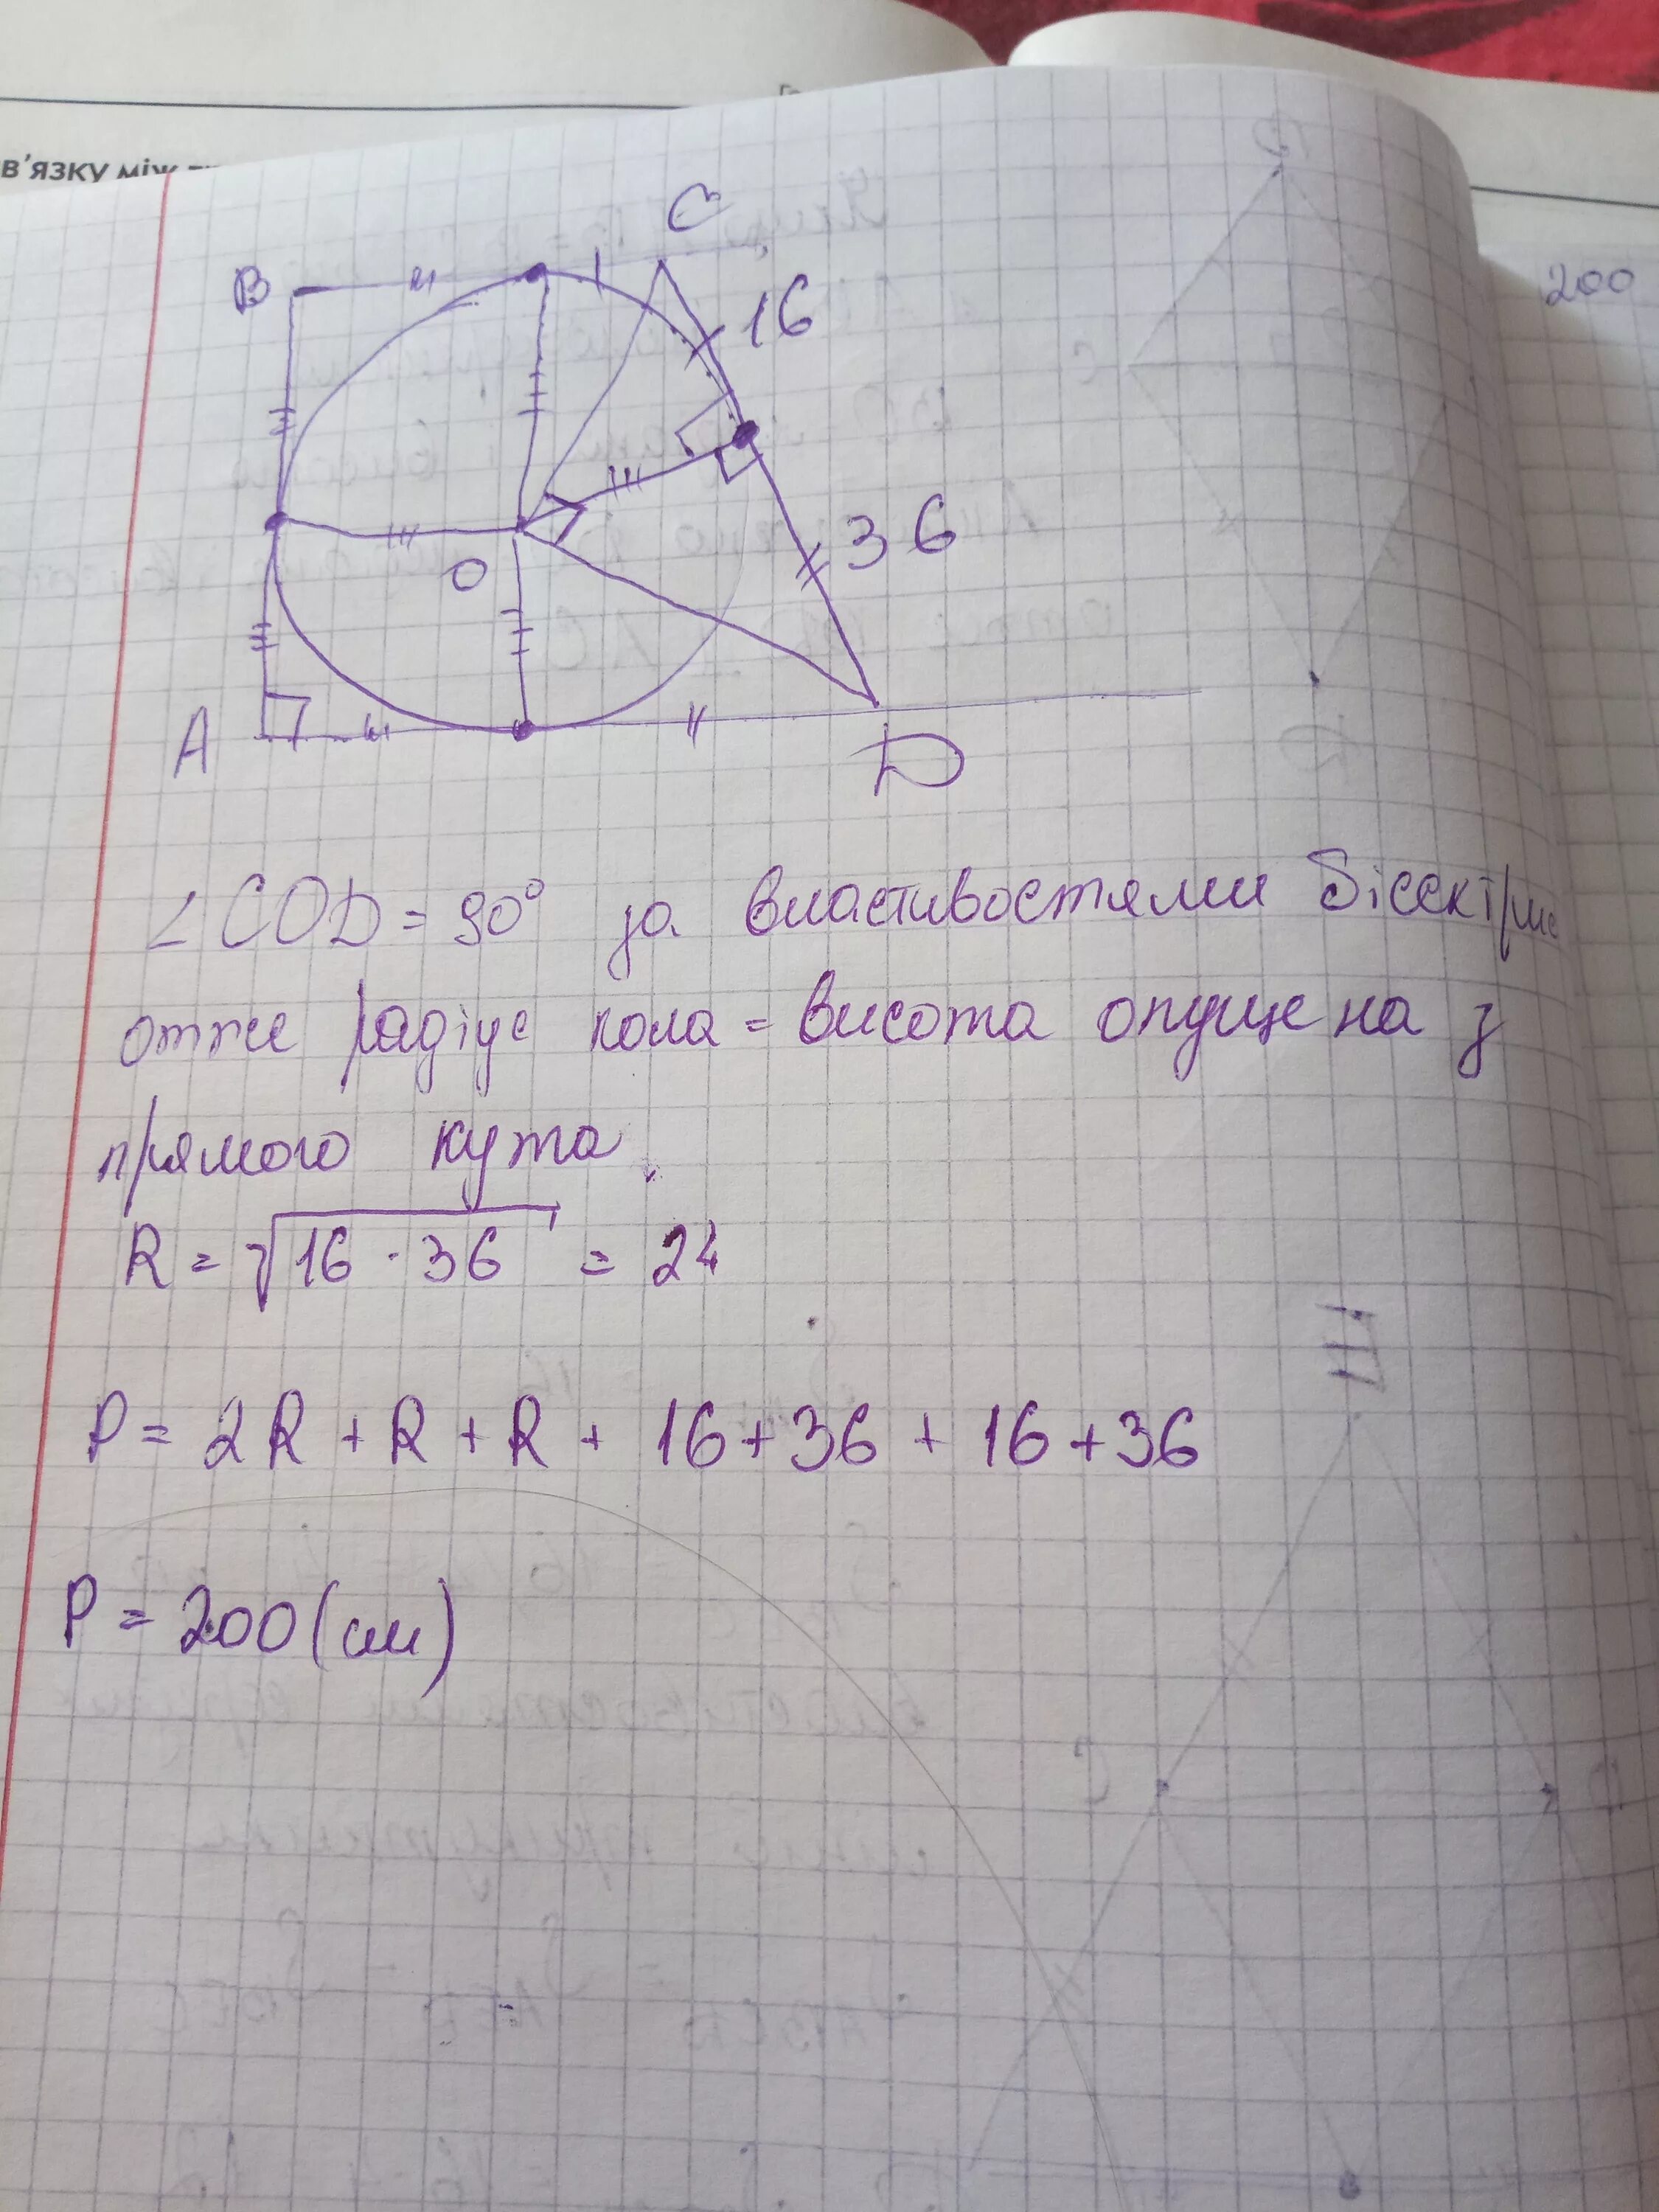 в'язку між
200
C
B
16
36
O
A
D
∠COD = 90° за властивостями бісектрис
отже радіус кола = висота опущена з
прямого кута.
R = √16 · 36 = 24
P = 2R + R + R + 16 + 36 + 16 + 36
P = 200 (см)